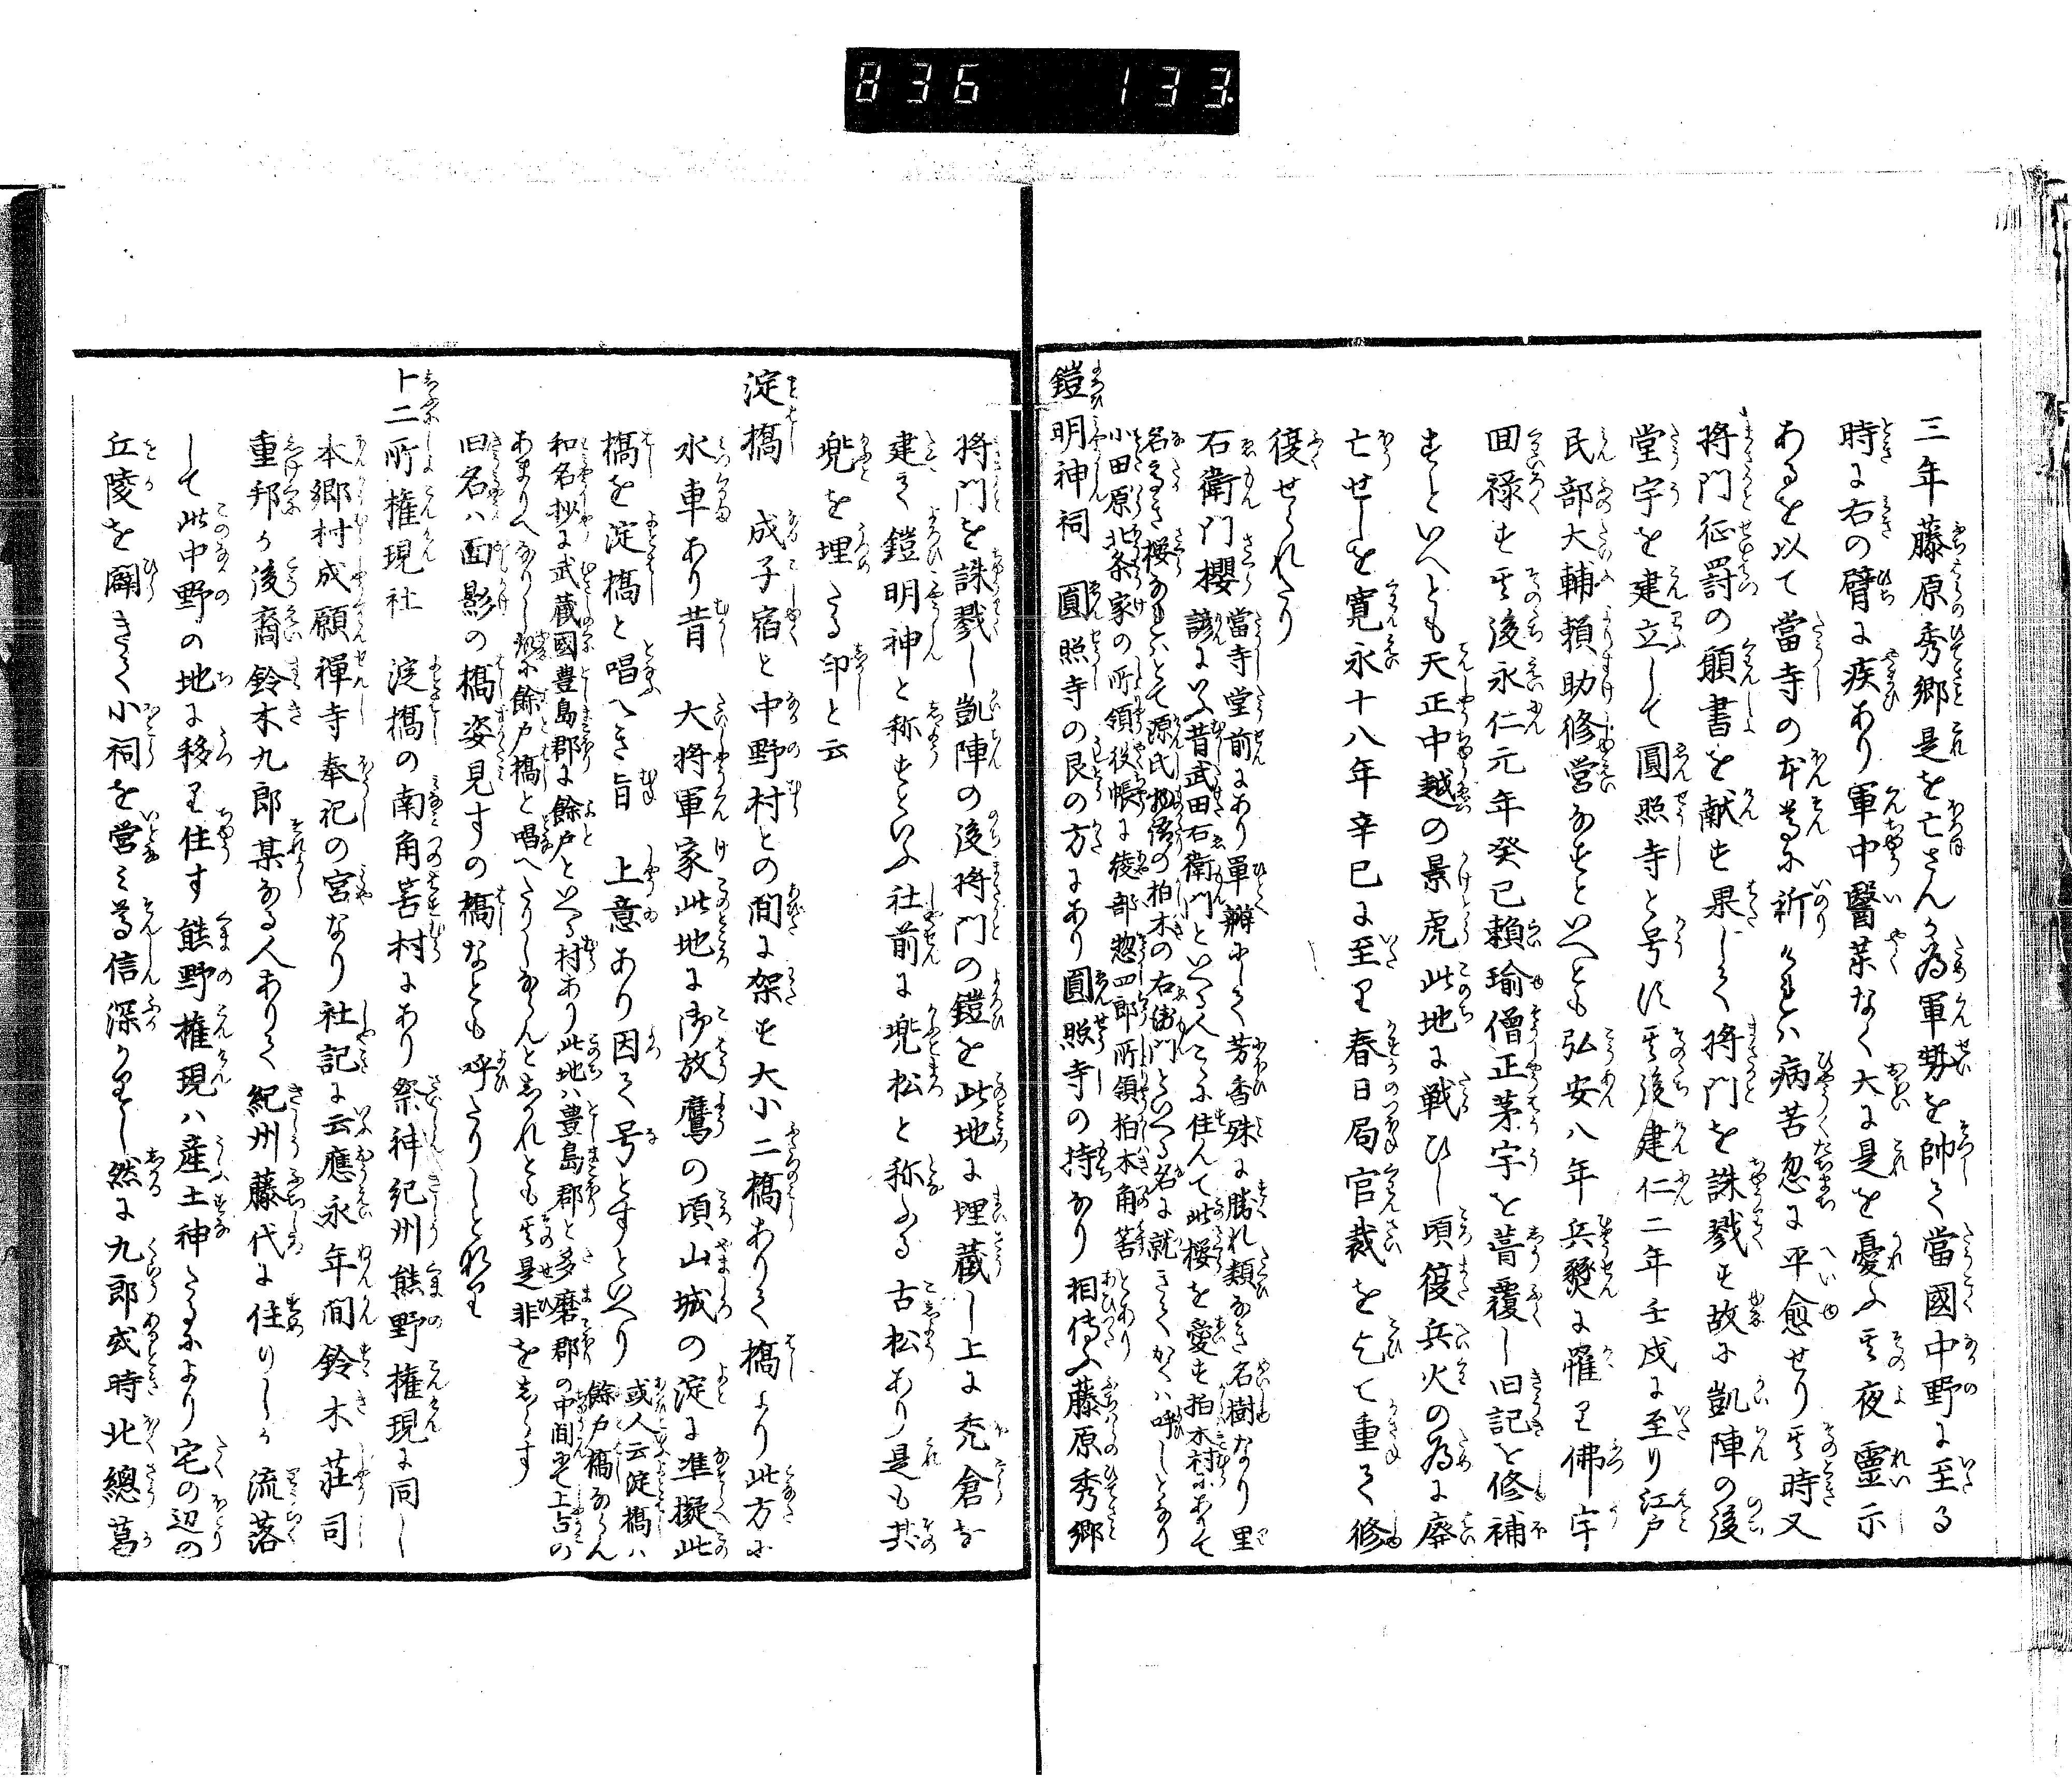 836 133
三年藤原秀郷是を亡さんか為軍勢を帥て當國中野に至る
時に右の臂に疾あり軍中醫薬なく大に是を憂ふ其夜靈示
あるを以て當寺の本尊に祈りけれハ病苦忽に平愈せり其時又
将門征罸の願書を献す果して将門を誅戮す故に凱陣の後
堂宇を建立して圓照寺と号す其後建仁二年壬戌に至り江戸
民部大輔頼助修営なすといへとも弘安八年兵燹に罹り佛宇
回禄す其後永仁元年癸巳頼瑜僧正茅宇を葺覆し旧記を修補
すといへとも天正中越の景虎此地に戦ひし頃復兵火の為に廢
亡せしを寛永十八年辛巳に至り春日局官裁を乞て重て修
復せられたり
右衛門櫻 當寺堂前にあり單瓣にして芳香殊に勝れ類なき名樹なり里
諺にいふ昔武田右衛門といへる人こゝに住んて此桜を愛す柏木村にありて
名高き桜なれハとて源氏物語の柏木の右衛門といへる名に就きてかくハ呼しとなり
小田原北条家の所領役帳に綾部惣四郎所領柏木角筈とあり
鎧明神祠 圓照寺の艮の方にあり圓照寺の持なり相傳ふ藤原秀郷
将門を誅戮し凱陣の後将門の鎧を此地に埋蔵し上に禿倉を
建て鎧明神と称すといふ社前に兜松と称ふる古松あり是も其
兜を埋たる印と云
淀橋 成子宿と中野村との間に架す大小二橋ありて橋より此方に
水車あり昔 大将軍家此地に御放鷹の頃山城の淀に准擬此
橋を淀橋と唱へき旨 上意あり因て号とすといへり 或人云淀橋ハ
餘戸橋ならん
和名抄に武蔵國豊島郡に餘戸といへる村あり此地ハ豊島郡と多磨郡の中間にて上古の
あまりへなりし故に餘戸橋と唱へたりしならんとしかれとも其是非をしらす
旧名ハ面影の橋姿見すの橋なとも呼たりしとなり
十二所権現社 淀橋の南角筈村にあり祭神紀州熊野権現に同し
本郷村成願禪寺奉祀の宮なり社記に云應永年間鈴木荘司
重邦か後裔鈴木九郎某なる人ありて紀州藤代に住りしか流落
して此中野の地に移り住す熊野権現ハ産土神たるにより宅の辺の
丘陵を闢きて小祠を営み尊信深かりし然に九郎或時北總葛